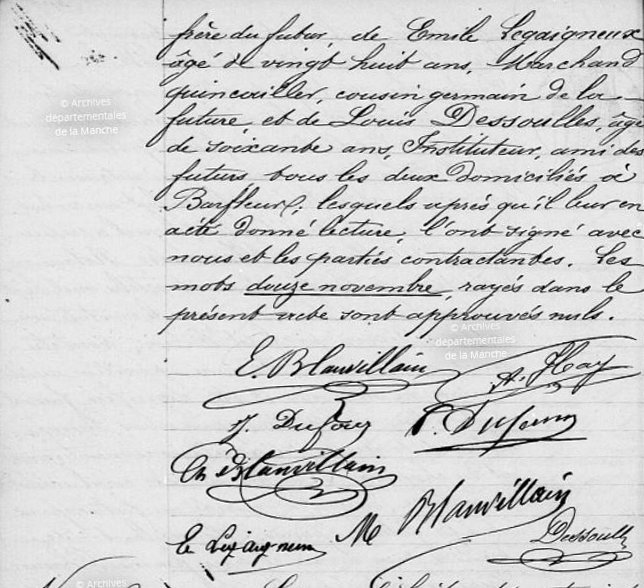 frère du futur, de Emile Legaigneux
âgé de vingt huit ans, Marchand
quincailler, cousin germain de la
future, et de Louis Dessoulles, âgé
de soixante ans, Instituteur, ami des
futurs tous les deux domiciliés à
Barfleur, lesquels après qu'il leur en
a été donné lecture, l'ont signé avec
nous et les parties contractantes. Les
mots douze novembre, rayés dans le
présent acte sont approuvés nuls.
E. Blanvillain A. Hay
J. Dufour P. Dufour
Ch Blanvillain
M Blanvillain
E Legaigneux Dessoulles
© Archives
départementales
de la Manche
© Archives
départementales
de la Manche
© Archives